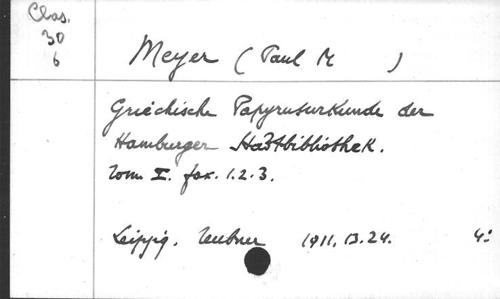 Clas.
30
6
Meyer (Paul M )
Griechische Papyrusurkunde der
Hamburger Stadtbibliothek.
Tom. I. fax. 1.2.3.
Leipzig. Teubner 1911, 13.24. 4: